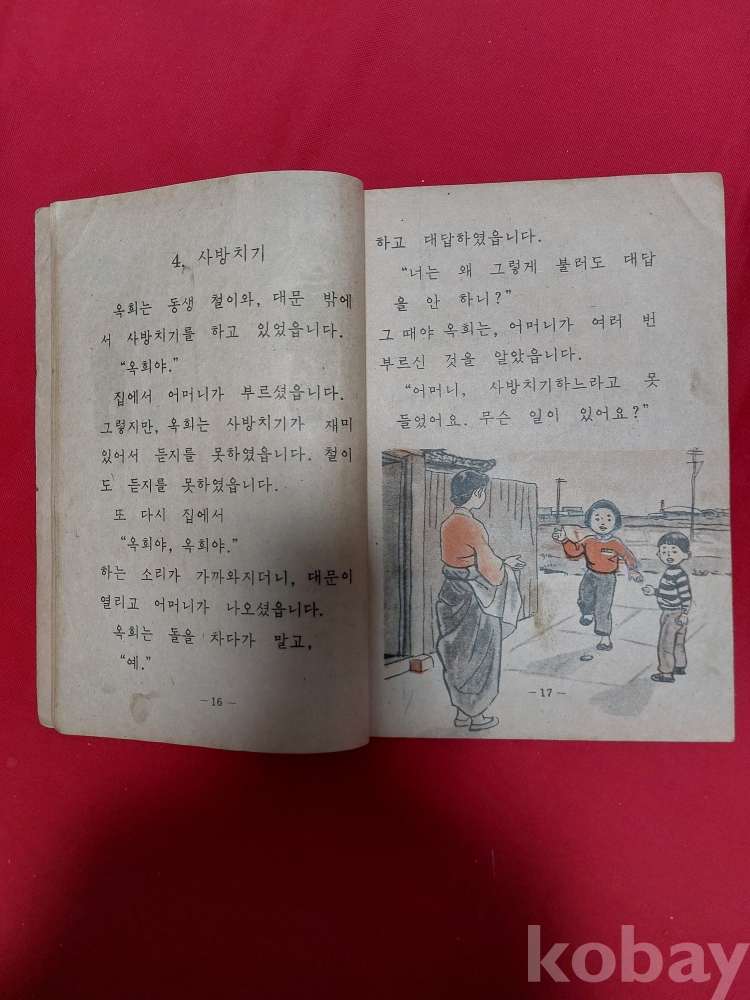 4. 사방치기
옥희는 동생 철이와, 대문 밖에
서 사방치기를 하고 있었읍니다.
“옥희야.”
집에서 어머니가 부르셨읍니다.
그렇지만, 옥희는 사방치기가 재미
있어서 듣지를 못하였읍니다. 철이
도 듣지를 못하였읍니다.
또 다시 집에서
“옥희야, 옥희야.”
하는 소리가 가까와지더니, 대문이
열리고 어머니가 나오셨읍니다.
옥희는 돌을 차다가 말고,
“예.”
— 16 —
하고 대답하였읍니다.
“너는 왜 그렇게 불러도 대답
을 안 하니?”
그 때야 옥희는, 어머니가 여러 번
부르신 것을 알았읍니다.
“어머니, 사방치기하느라고 못
들었어요. 무슨 일이 있어요?”
— 17 —
kobay